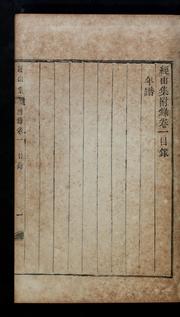 經山集附錄卷一目錄
年譜
經山集 附錄卷一 目錄 一